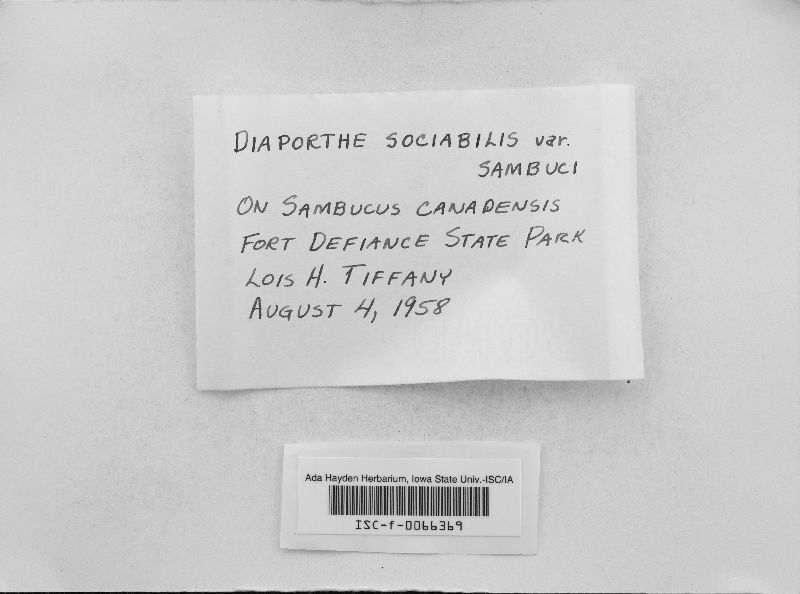 DIAPORTHE SOCIABILIS var.
SAMBUCI
ON SAMBUCUS CANADENSIS
FORT DEFIANCE STATE PARK
LOIS H. TIFFANY
AUGUST 4, 1958
Ada Hayden Herbarium, Iowa State Univ.-ISC/IA
ISC-f-0066369